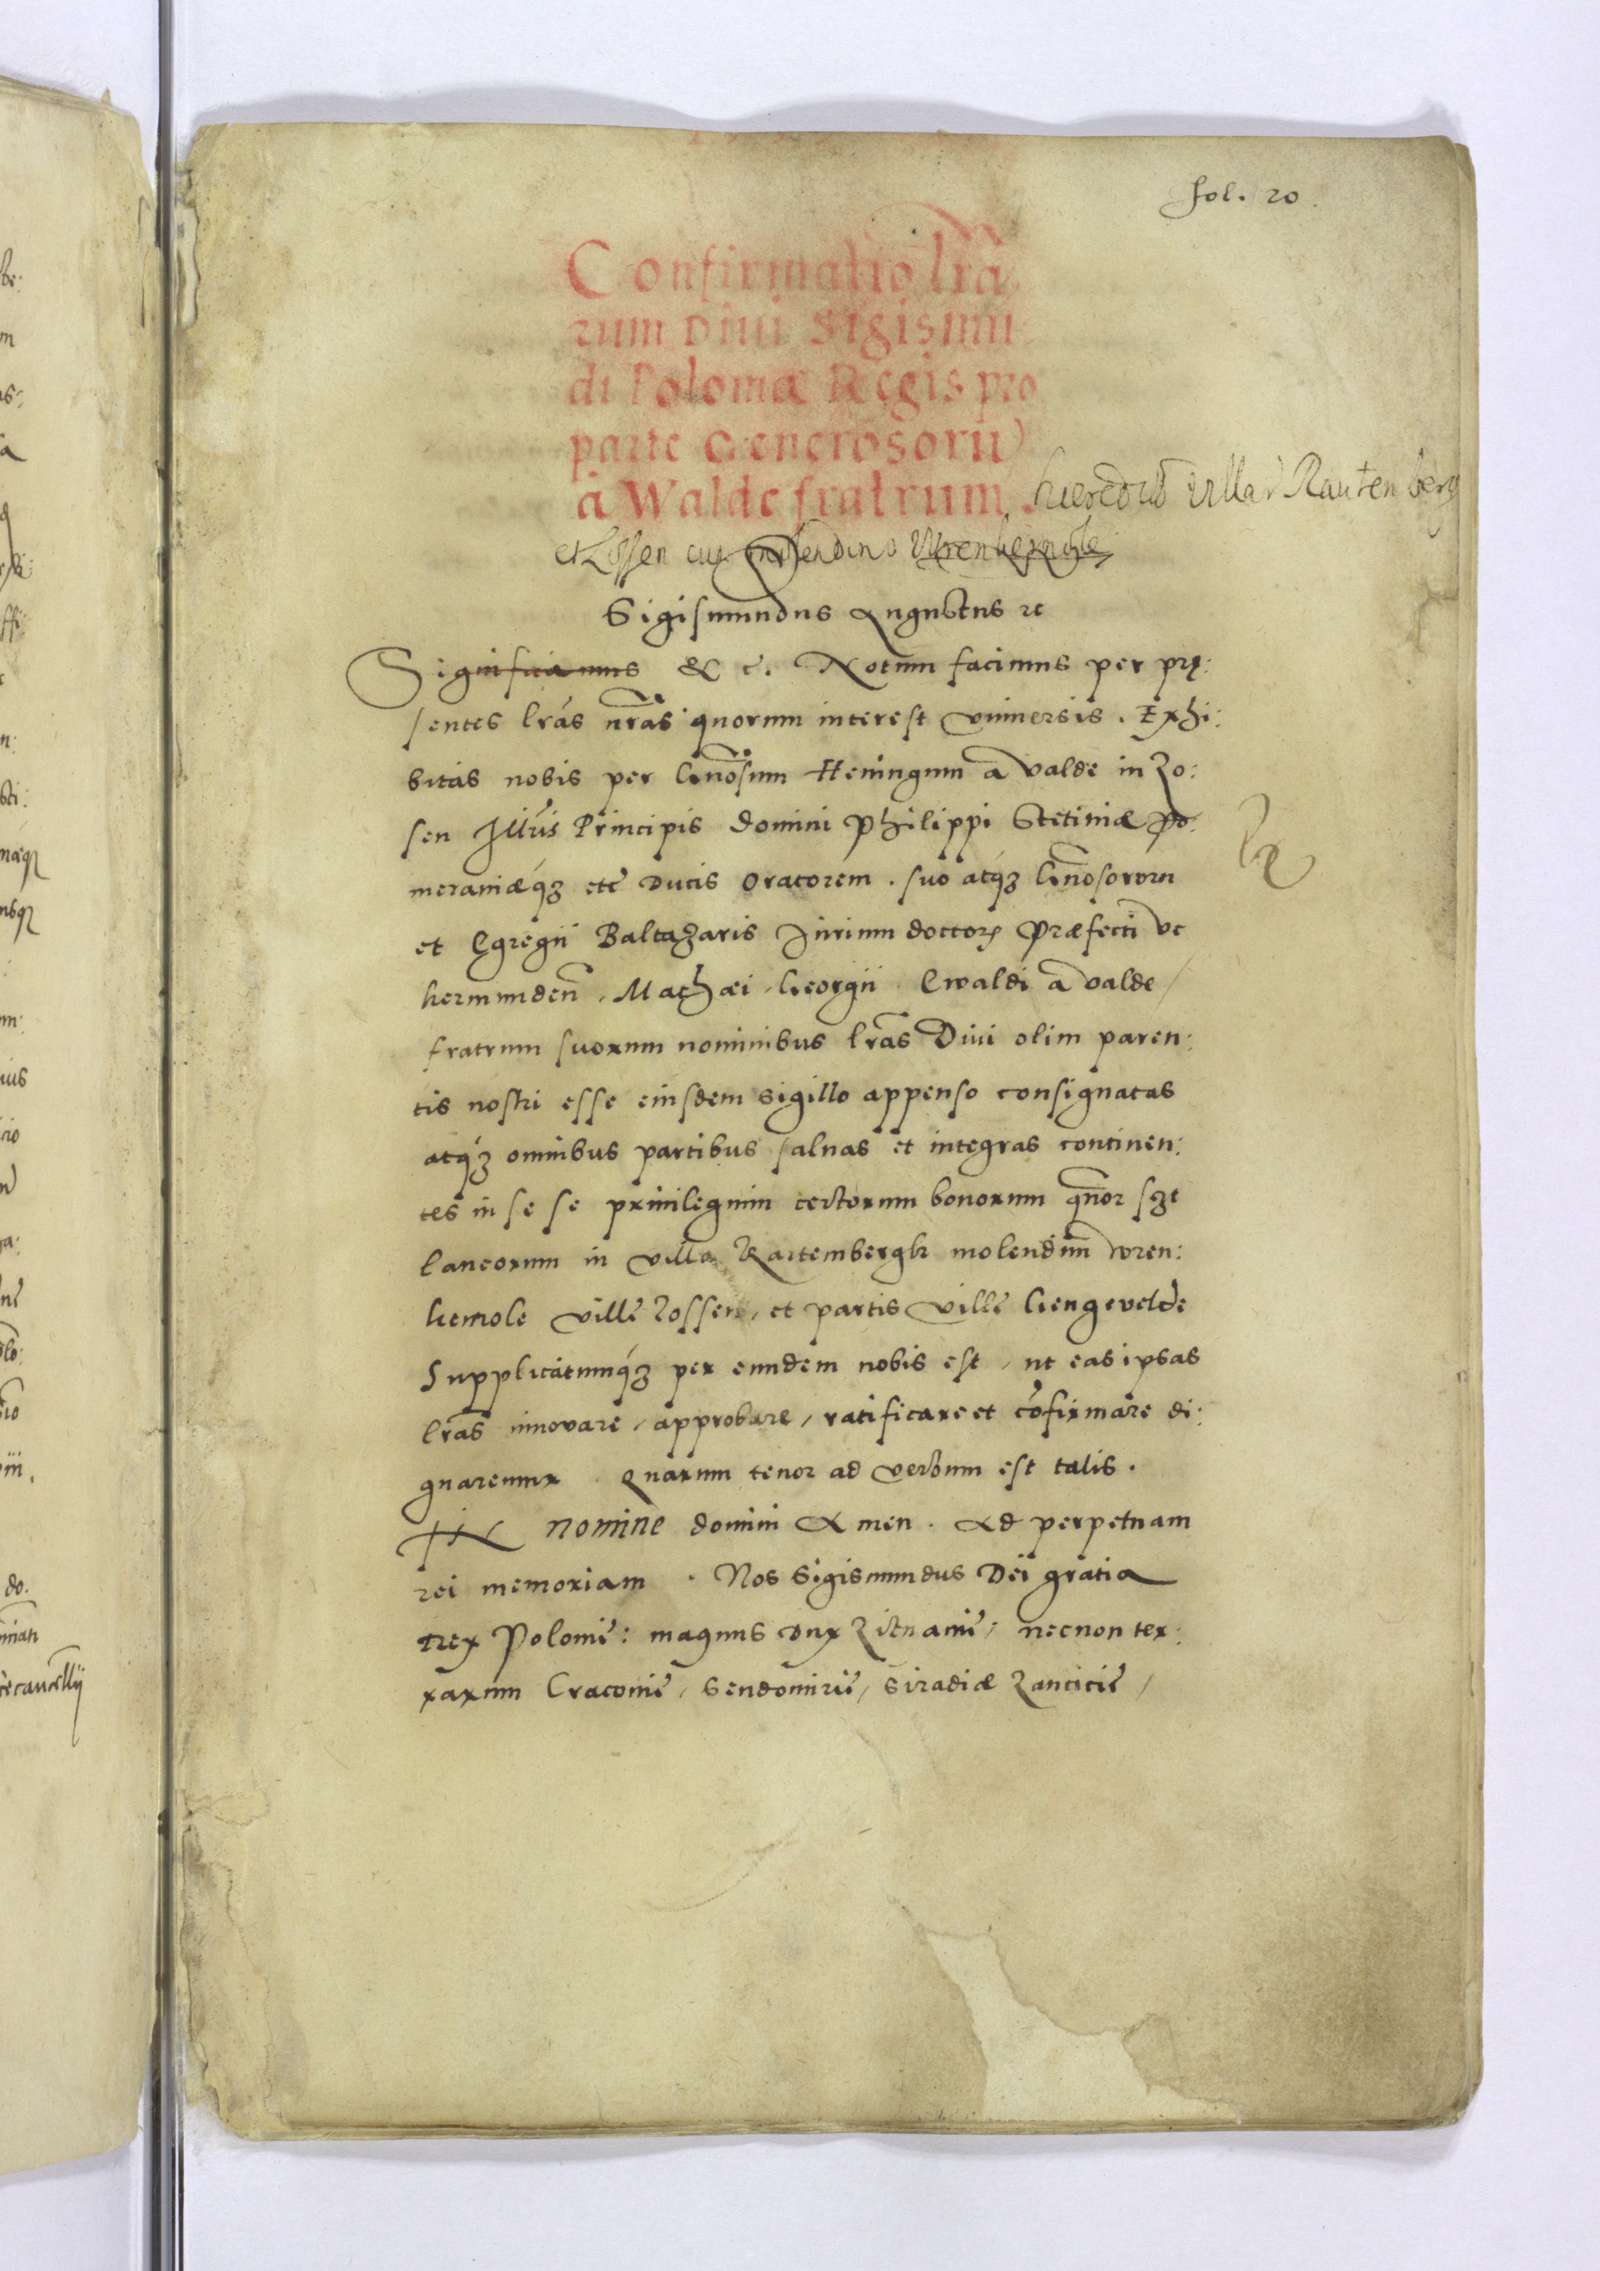 fol. 20.
Confirmatio lrã
rum Diui Sigismũ
di Poloniæ Regis pro
parte Generosorũ
à Walde fratrum. hæredũ villar̃ Rautenberg
et Lossen cum molendino Wrenkemole
Sigismundus Augustus ꝛc
Significamus & c. Notum facimus per prę:
sentes lrãs nrãs quorum interest vniuersis. Exhi:
bitas nobis per Gnõsum Heningum a Valde in Lo:
sen Illris Principis domini Philippi Stetiniæ Po:
meraniæqꝫ etc Ducis Oratorem. suo atqꝫ Gnõsorum
et Egregii Baltazaris Jurium doctoris Præfecti Vc
kermunden̄, Mathæi, Georgii Ewaldi a Valde/
fratrum suorum nominibus lrãs Diui olim paren:
tis nostri esse eiusdem sigillo appenso consignatas
atqꝫ omnibus partibus saluas et integras continen:
tes in se se priuilegium certorum bonorum quor̃ sꝫt
laneorum in villa Rartembergk molendini wren:
kemole villę Lossen, et partis villę Gengevelde
Supplicatumqꝫ per eundem nobis est, ut eas ipsas
lrãs innovare, approbare, ratificare et cõfirmare di:
gnaremur. Quarum tenor ad verbum est talis.
IN nomine domini Amen. Ad perpetuam
rei memoriam. Nos Sigismundus Dei gratia
Rex Polonię: magnus Dux Lituanię, necnon ter:
rarum Cracouię, Sendomirię, Siradiæ Lancicię,